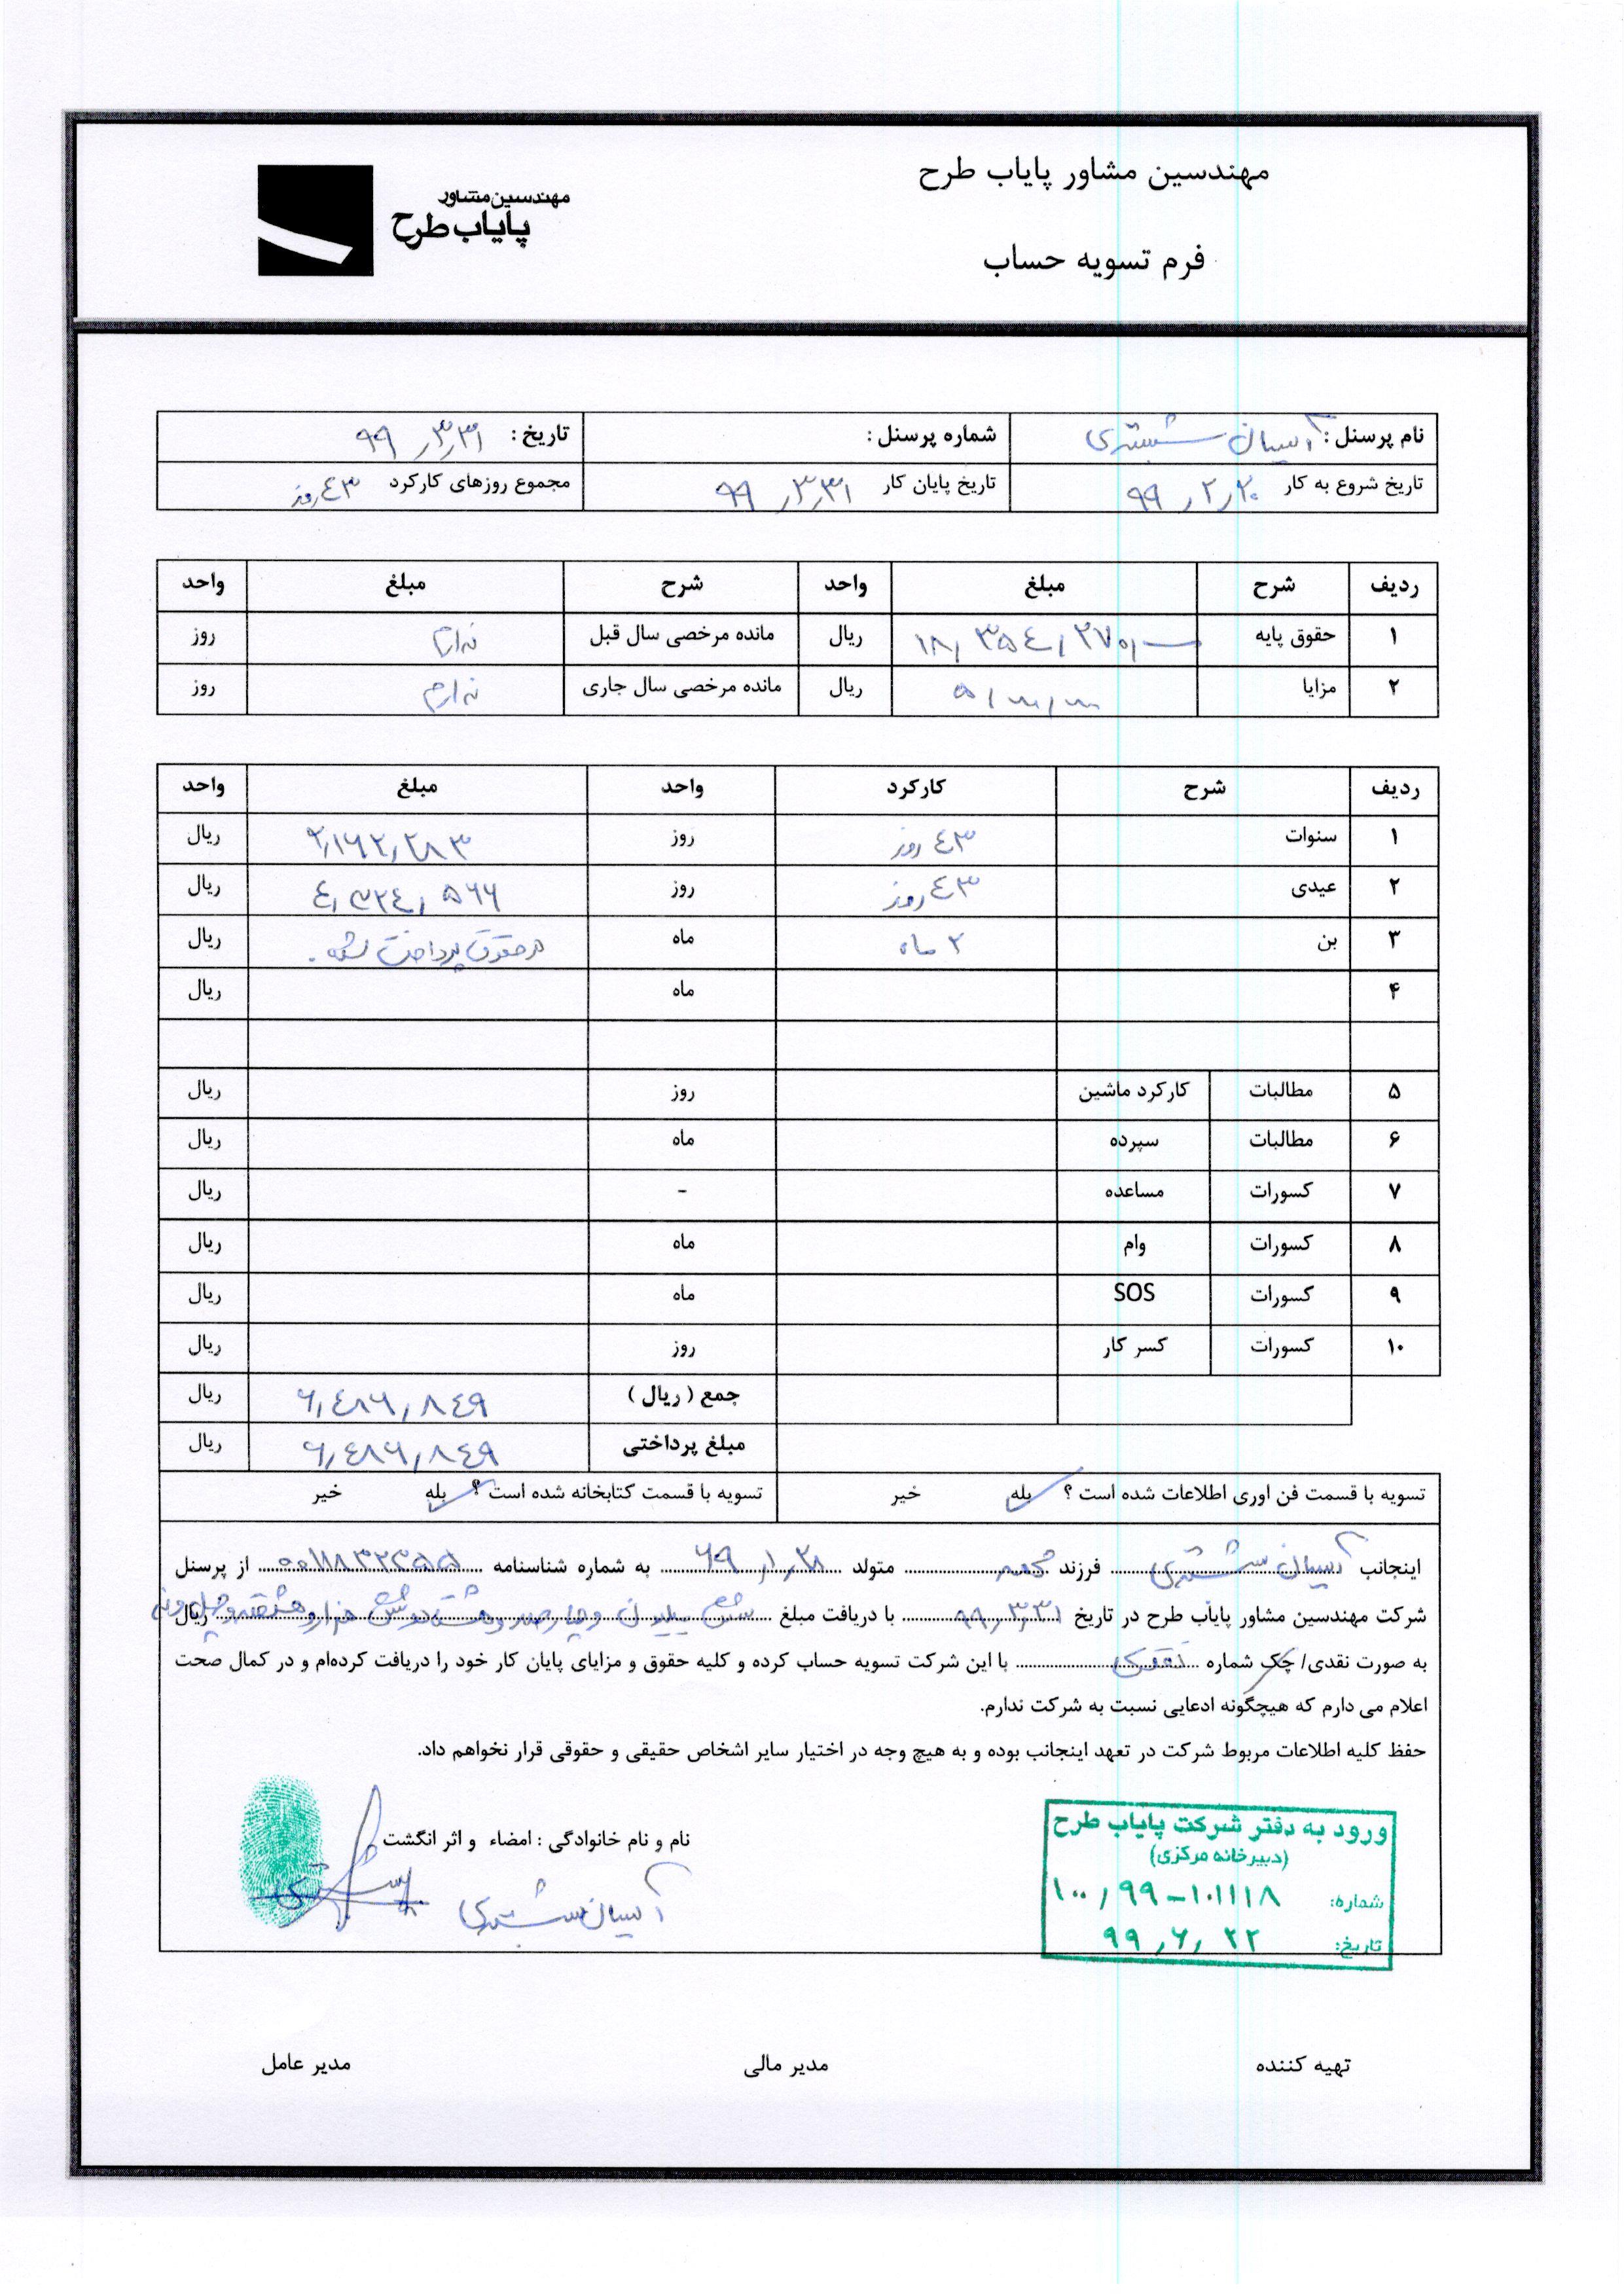 مهندسین مشاور پایاب طرح
مهندسین مشاور
پایاب طرح
فرم تسویه حساب
نام پرسنل : آسیان شبستری شماره پرسنل : تاریخ : ۹۹٫۳٫۳۱
تاریخ شروع به کار ۹۹٫۲٫۲۰ تاریخ پایان کار ۹۹٫۳٫۳۱ مجموع روزهای کارکرد ۴۳ روز
ردیف شرح مبلغ واحد شرح مبلغ واحد
۱ حقوق پایه ریال مانده مرخصی سال قبل ندارم روز
۲ مزایا ریال مانده مرخصی سال جاری ندارم روز
ردیف شرح کارکرد واحد مبلغ واحد
۱ سنوات ۴۳ روز روز ۲٫۱۶۲٫۲۸۳ ریال
۲ عیدی ۴۳ روز روز ۴٫۳۲۴٫۵۶۶ ریال
۳ بن ۲ ماه ماه در حقوق پرداخت شده . ریال
۴ ماه ریال
۵ مطالبات کارکرد ماشین روز ریال
۶ مطالبات سپرده ماه ریال
۷ کسورات مساعده - ریال
۸ کسورات وام ماه ریال
۹ کسورات SOS ماه ریال
۱۰ کسورات کسر کار روز ریال
جمع ( ریال ) ۶٫۴۸۶٫۸۴۹ ریال
مبلغ پرداختی ۶٫۴۸۶٫۸۴۹ ریال
تسویه با قسمت فن اوری اطلاعات شده است ؟ بله خیر تسویه با قسمت کتابخانه شده است ؟ بله خیر
اینجانب آسیان شبستری فرزند متولد ۶۹٫۱٫۲۸ به شماره شناسنامه از پرسنل
شرکت مهندسین مشاور پایاب طرح در تاریخ ۹۹٫۳٫۳۱ با دریافت مبلغ شش میلیون و چهارصد و هشتاد و شش هزار و هشتصد و چهل و نه ریال
به صورت نقدی/ چک شماره نقدی با این شرکت تسویه حساب کرده و کلیه حقوق و مزایای پایان کار خود را دریافت کرده‌ام و در کمال صحت
اعلام می دارم که هیچگونه ادعایی نسبت به شرکت ندارم.
حفظ کلیه اطلاعات مربوط شرکت در تعهد اینجانب بوده و به هیچ وجه در اختیار سایر اشخاص حقیقی و حقوقی قرار نخواهم داد.
نام و نام خانوادگی : امضاء و اثر انگشت
آسیان شبستری
ورود به دفتر شرکت پایاب طرح
(دبیرخانه مرکزی)
شماره: ۱۰۰٫۹۹-۱۰۱۱۱۸
تاریخ: ۹۹٫۶٫۲۲
تهیه کننده مدیر مالی مدیر عامل